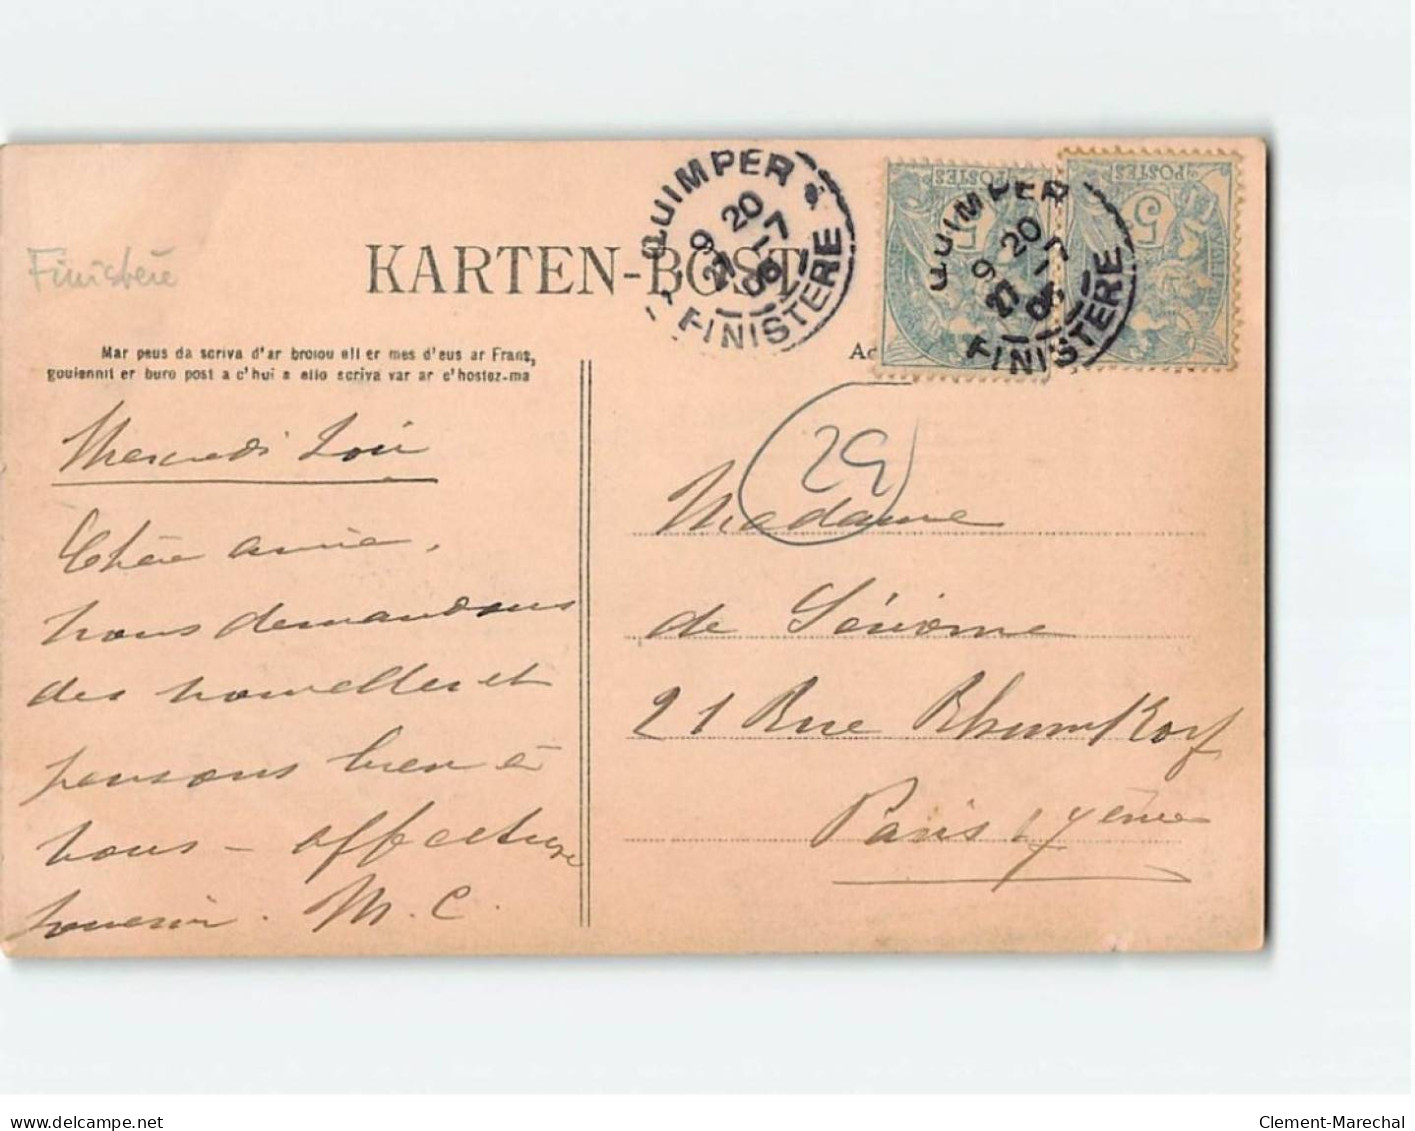 Finistère
KARTEN-POST
QUIMPER
9 20
27 -7
06
FINISTERE
QUIMPER
9 20
27 -7
06
FINISTERE
POSTES
5
POSTES
5
Mar peus da scriva d'ar broiou all er mes d'eus ar Frans,
goulennit er buro post a c'hui a ello scriva var ar c'hostez-ma
29
Mercredi Soir
Chère amie,
nous demandons
des nouvelles et
pensons bien à
vous - affectueux
souvenir. M. C.
Madame
de
21 Rue Rhumkorf
Paris 17ème
www.delcampe.net
Clement-Marechal